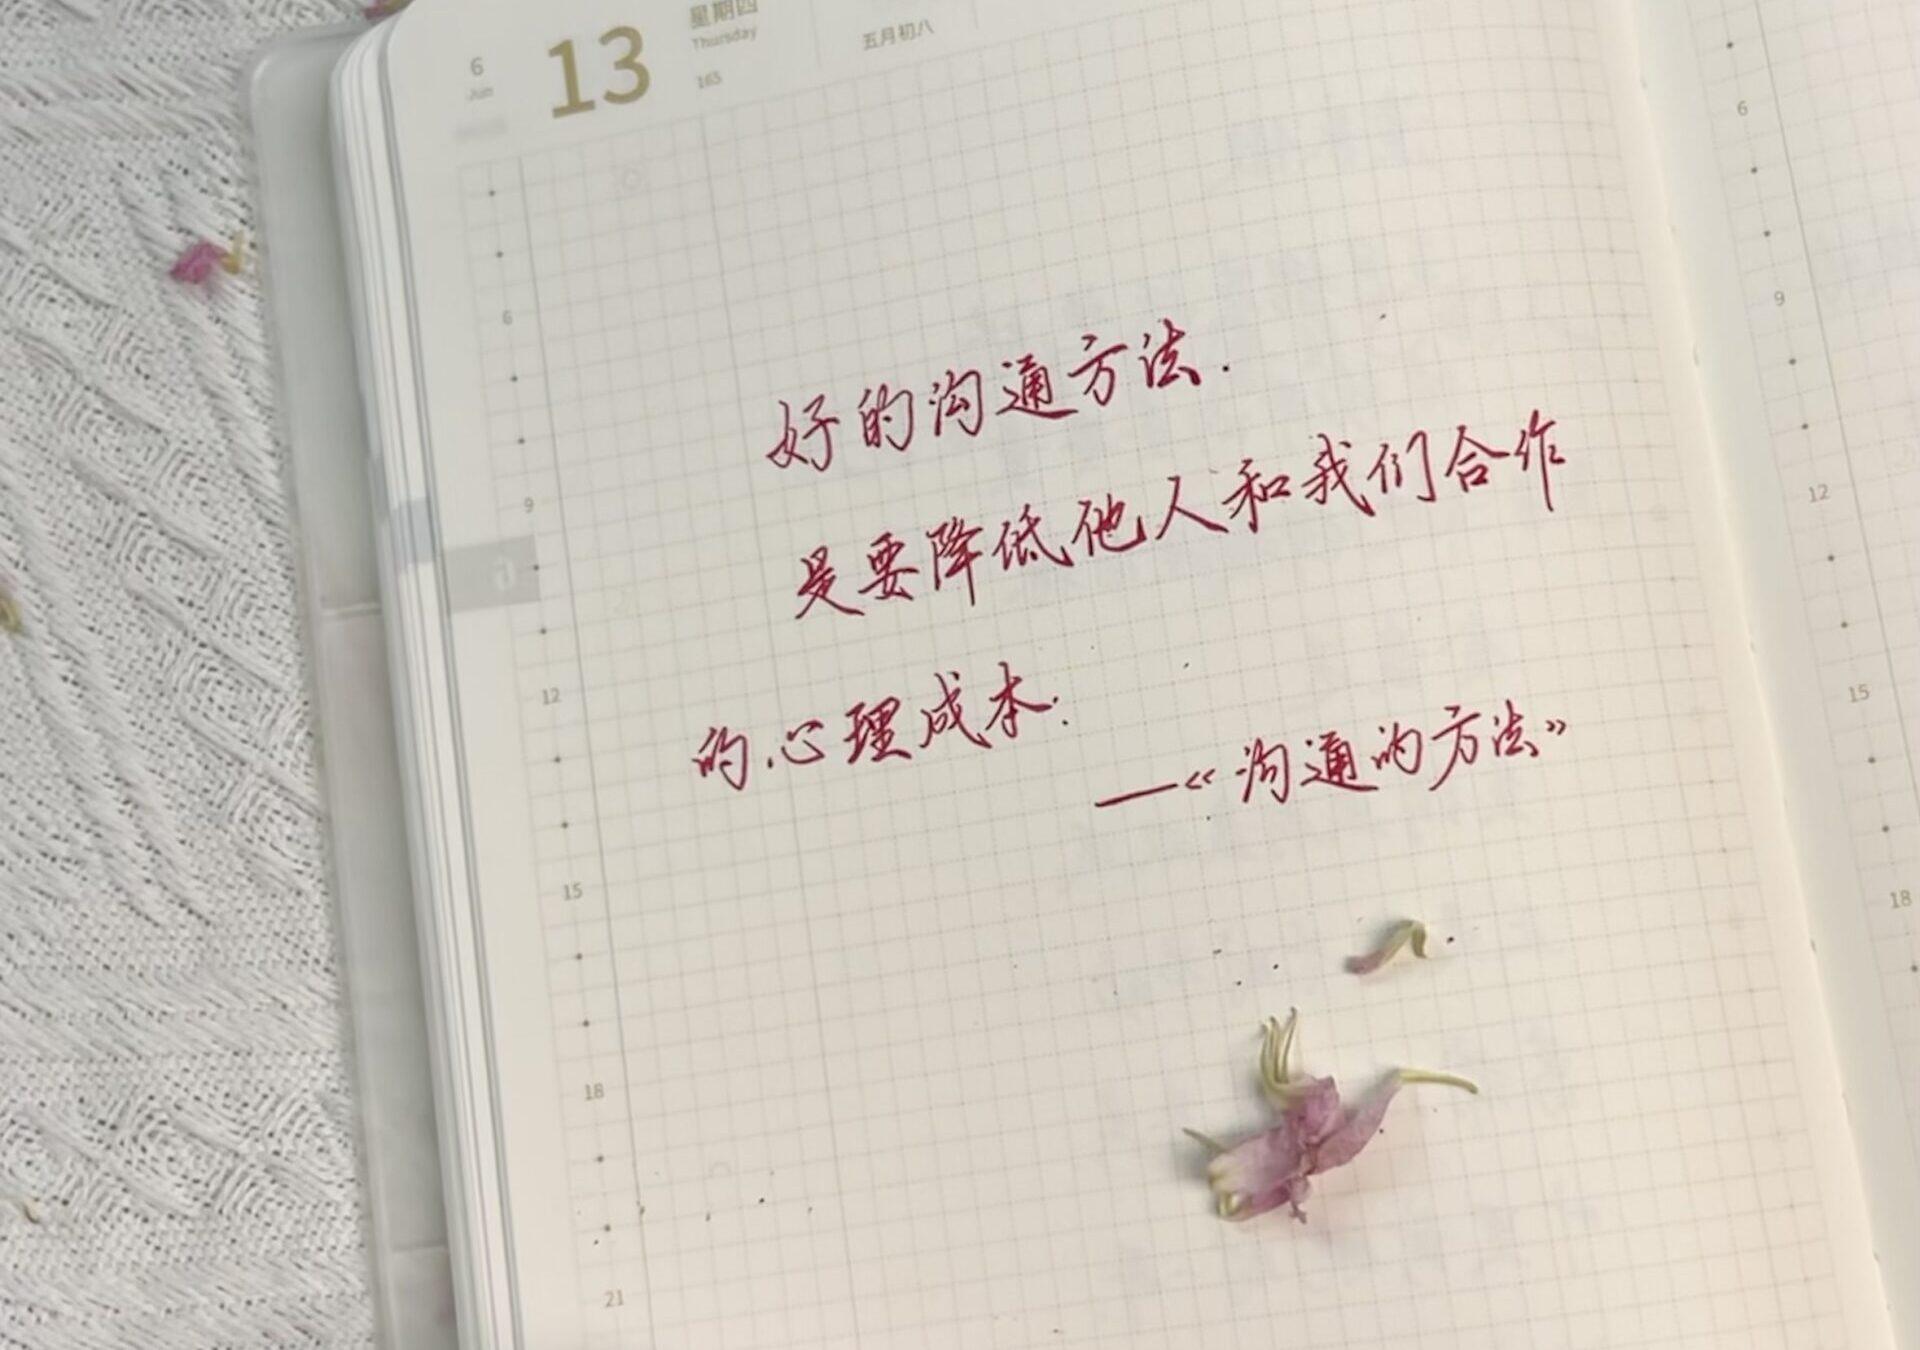 6
Jun
13
星期四
Thursday
165
五月初八
好的沟通方法.
是要降低他人和我们合作
的心理成本.
—《沟通的方法》
6
9
12
15
18
21
6
6
9
12
15
18